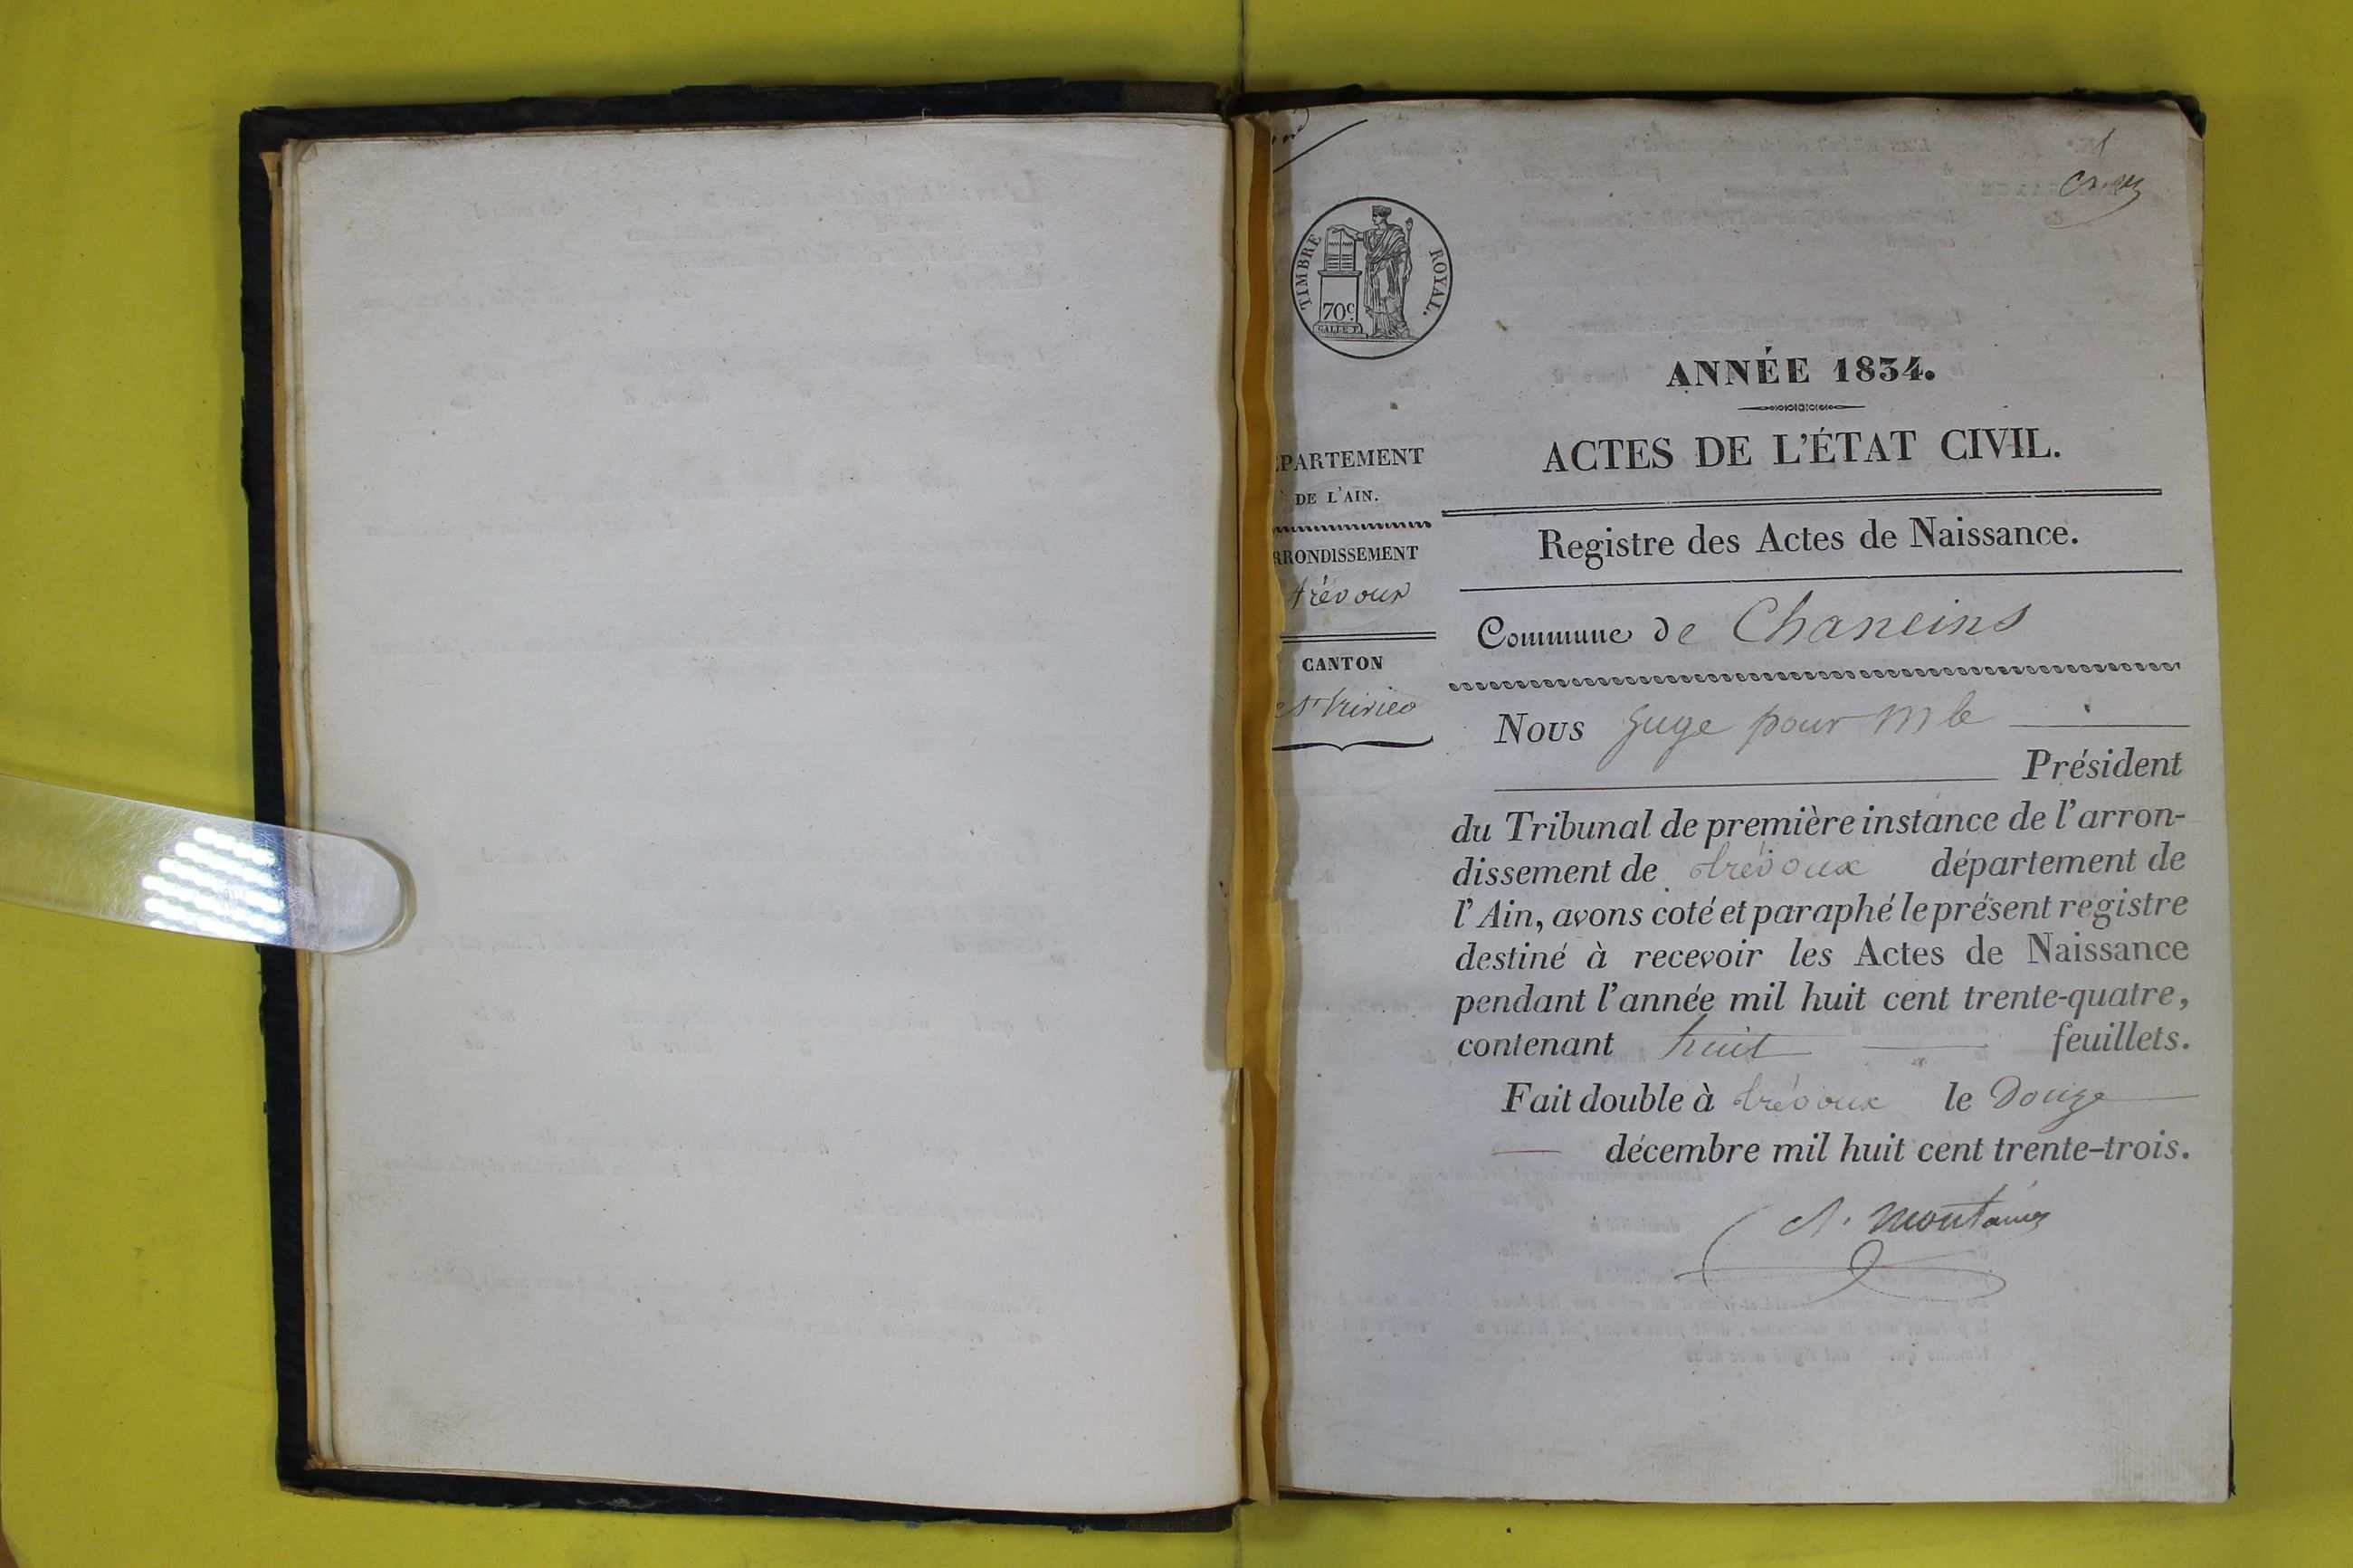 1
TIMBRE ROYAL.
70c
ANNÉE 1834.
ACTES DE L'ÉTAT CIVIL.
PARTEMENT
DE L'AIN.
Registre des Actes de Naissance.
RRONDISSEMENT
trévoux
Commune de Chaneins
CANTON
St trivier
Nous Juge pour Mr le
Président
du Tribunal de première instance de l'arron-
dissement de trévoux département de
l'Ain, avons coté et paraphé le présent registre
destiné à recevoir les Actes de Naissance
pendant l'année mil huit cent trente-quatre,
contenant huit feuillets.
Fait double à trévoux le Douze
décembre mil huit cent trente-trois.